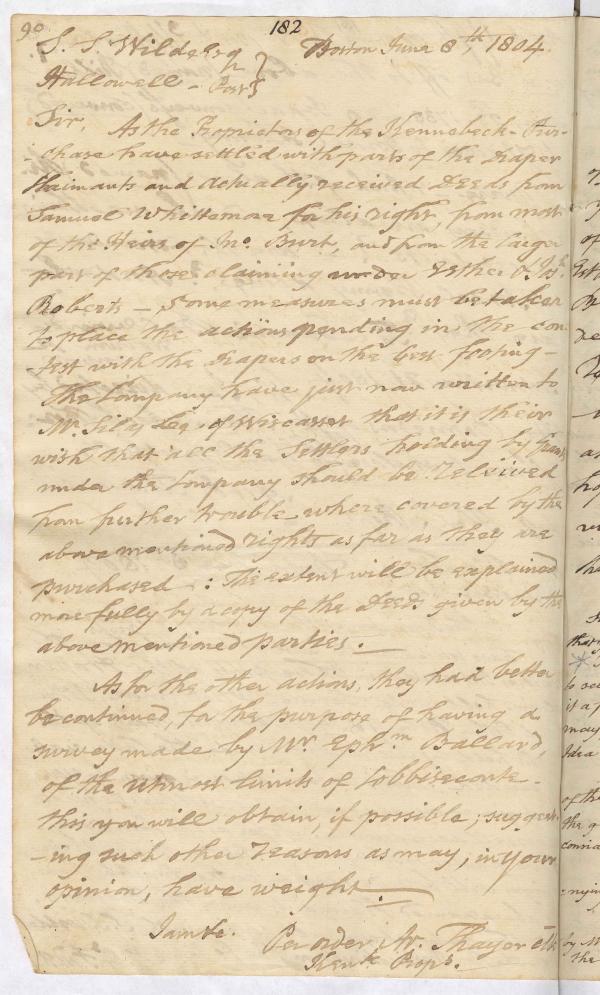 90
182
S. S. Wilde Esqr Boston June 8th, 1804.
Hallowell - Post
Sir, As the Proprietors of the Kennebeck-Pur-
-chase have settled with parts of the Draper
Claimants and Actually received Deeds from
Samuel Whittemore for his right, from most
of the Heirs of Jno. Burt, and from the larger
part of those claiming under Esther & Jos.
Roberts — Some measures must be taken
to place the actions pending in the con-
-test with the Drapers on the best footing —
The Company have just now written to
Mr. Silas Lee, of Wiscasset that it is their
wish that all the Settlers holding by Grants
under the Company should be relieved
from further trouble where covered by the
above mentioned rights as far as they are
purchased : The extent will be explained
more fully by a copy of the Deeds given by the
above mentioned parties. —
As for the other actions, they had better
be continued, for the purpose of having a
survey made by Mr. Ephm Ballard,
of the utmost limits of Cobbiseconte -
this you will obtain, if possible; suggest-
-ing such other reasons as may, in your
opinion, have weight.
I am &c. Per order, Ar. Thayer Clk
Kenk Props.